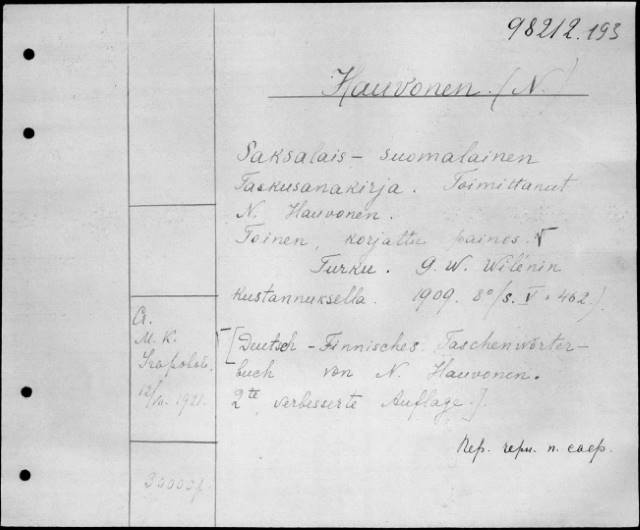 98212.193
Hauvonen. (N.)
Saksalais - suomalainen
Taskusanakirja. Toimittanut
N. Hauvonen.
Toinen, korjattu painos.
Turku. G. W. Wilénin
kustannuksella. 1909. 8º/s. V + 462.)
Ct.
M. K.
12/ 1921.
[Deutsch - Finnisches Taschenwörter-
buch von N. Hauvonen.
2te, verbesserte Auflage.].
Пер. герм. п. слов.
30000р